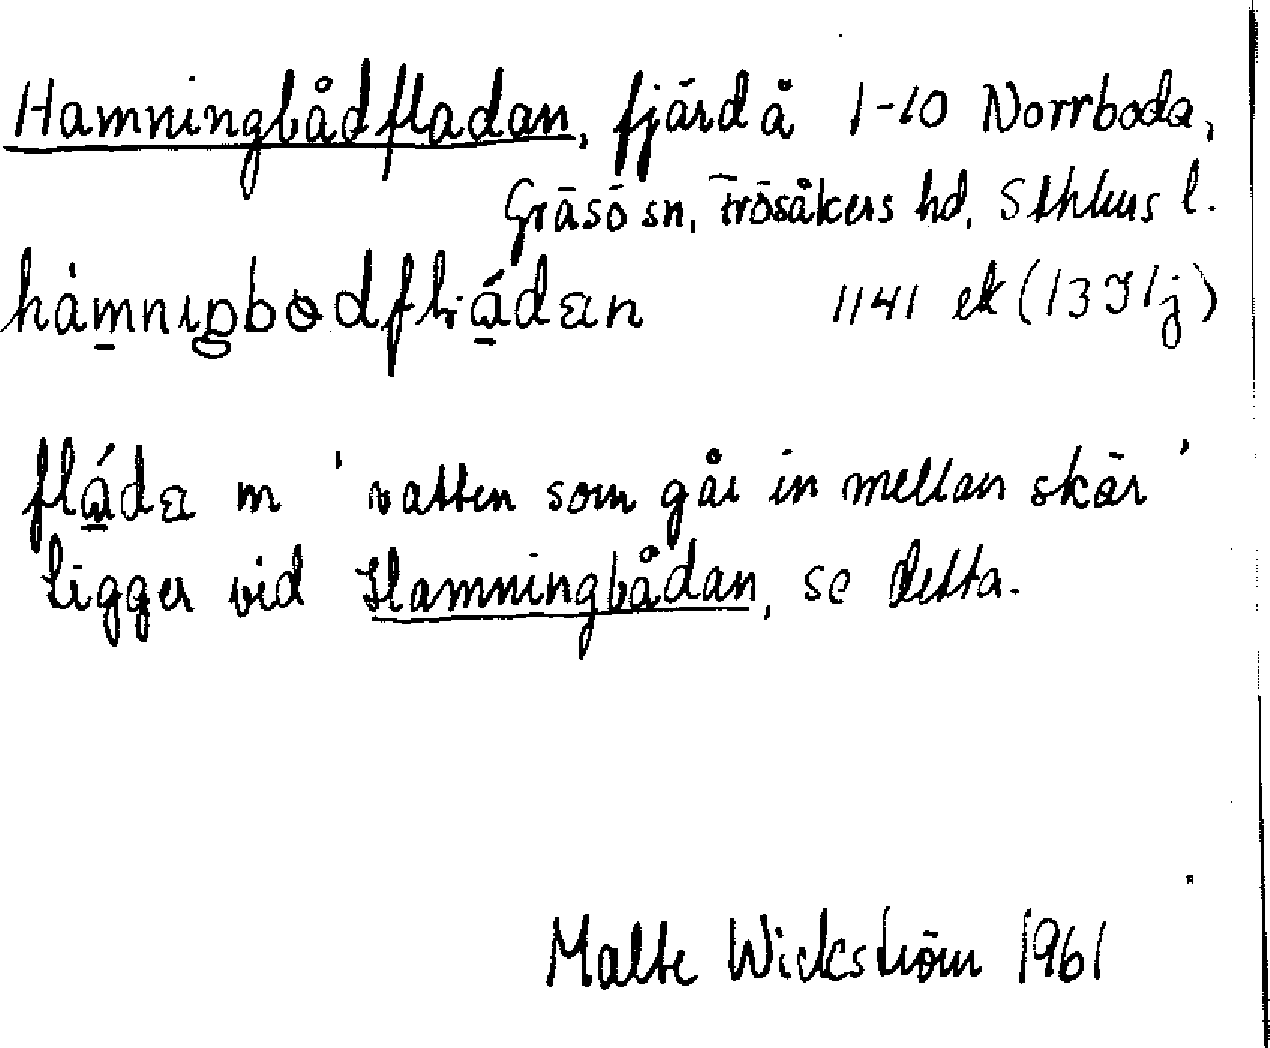 Hamningbådfladan, fjärd å 1-10 Norrboda,
Gräsö sn, Frösåkers hd, Sthlms l.
1141 ek (13I1j)
m 'vatten som går in mellan skär'
Ligger vid Hamningbådan, se detta.
Malte Wickström 1961